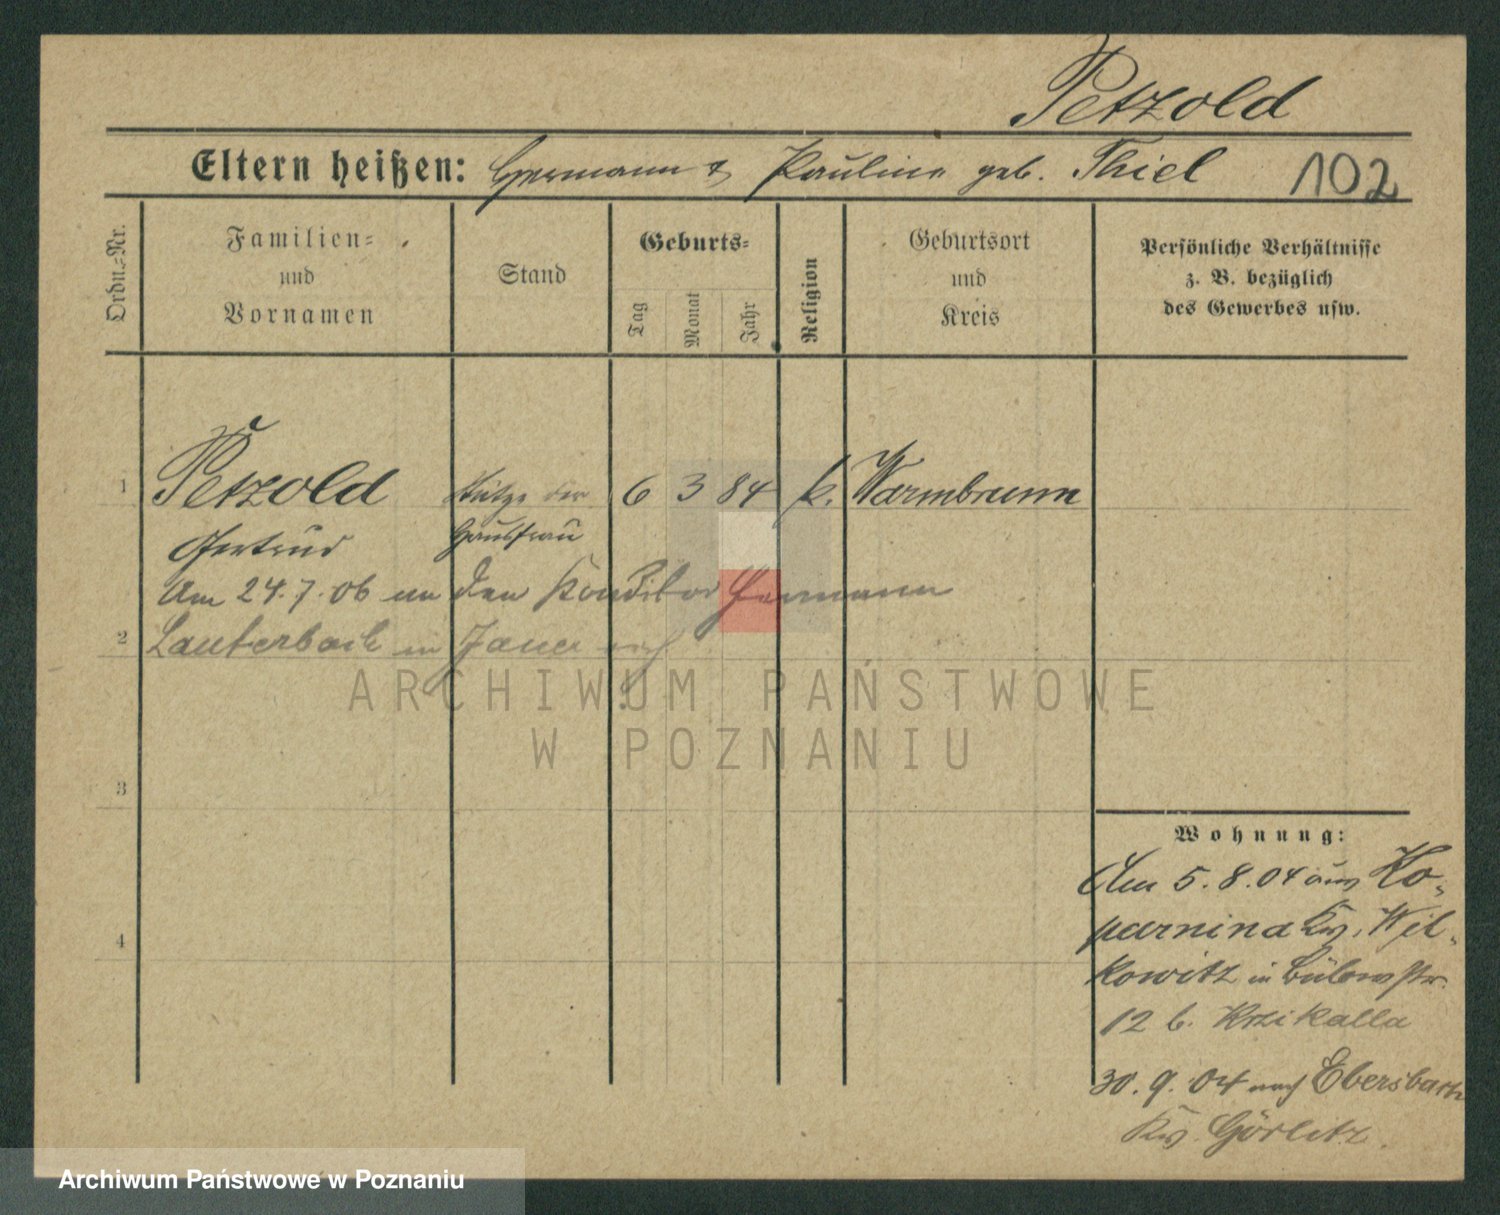 Petzold
Eltern heißen: Hermann & Pauline geb. Thiel 102
Ordn.-Nr.
Familien-
und
Vornamen
Stand
Geburts-
Tag
Monat
Jahr
Religion
Geburtsort
und
Kreis
Persönliche Verhältnisse
z. B. bezüglich
des Gewerbes usw.
1 Petzold Stütze der 6 3 84 k. Warmbrunn
Gertrud Hausfrau
Am 24.7.06 an den Konditor Hermann
2 Lauterbach in Jauer
3
4
Wohnung:
Am 5.8.04 aus Ko-
parnina Kr. Wil-
kowitz in Bülowstr.
12 b. Krzikalla
30.9.04 nach Ebersbach
Kr. Görlitz.
ARCHIWUM PAŃSTWOWE
W POZNANIU
Archiwum Państwowe w Poznaniu